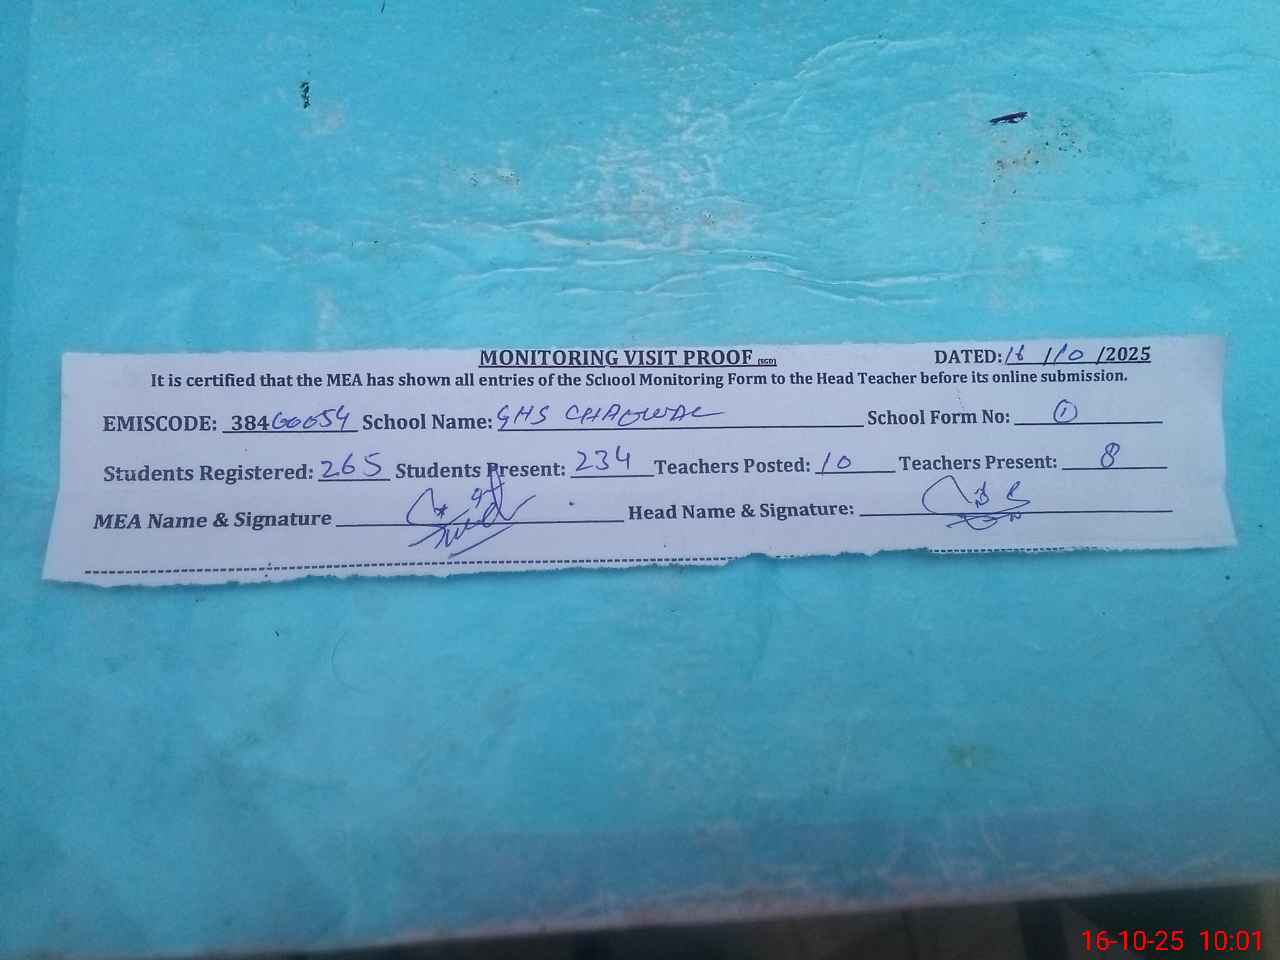 MONITORING VISIT PROOF (SGD) DATED: 16/10/2025
It is certified that the MEA has shown all entries of the School Monitoring Form to the Head Teacher before its online submission.
EMISCODE: 38460054 School Name: GHS CHAOWAL School Form No: 1
Students Registered: 265 Students Present: 234 Teachers Posted: 10 Teachers Present: 8
MEA Name & Signature Head Name & Signature:
16-10-25 10:01